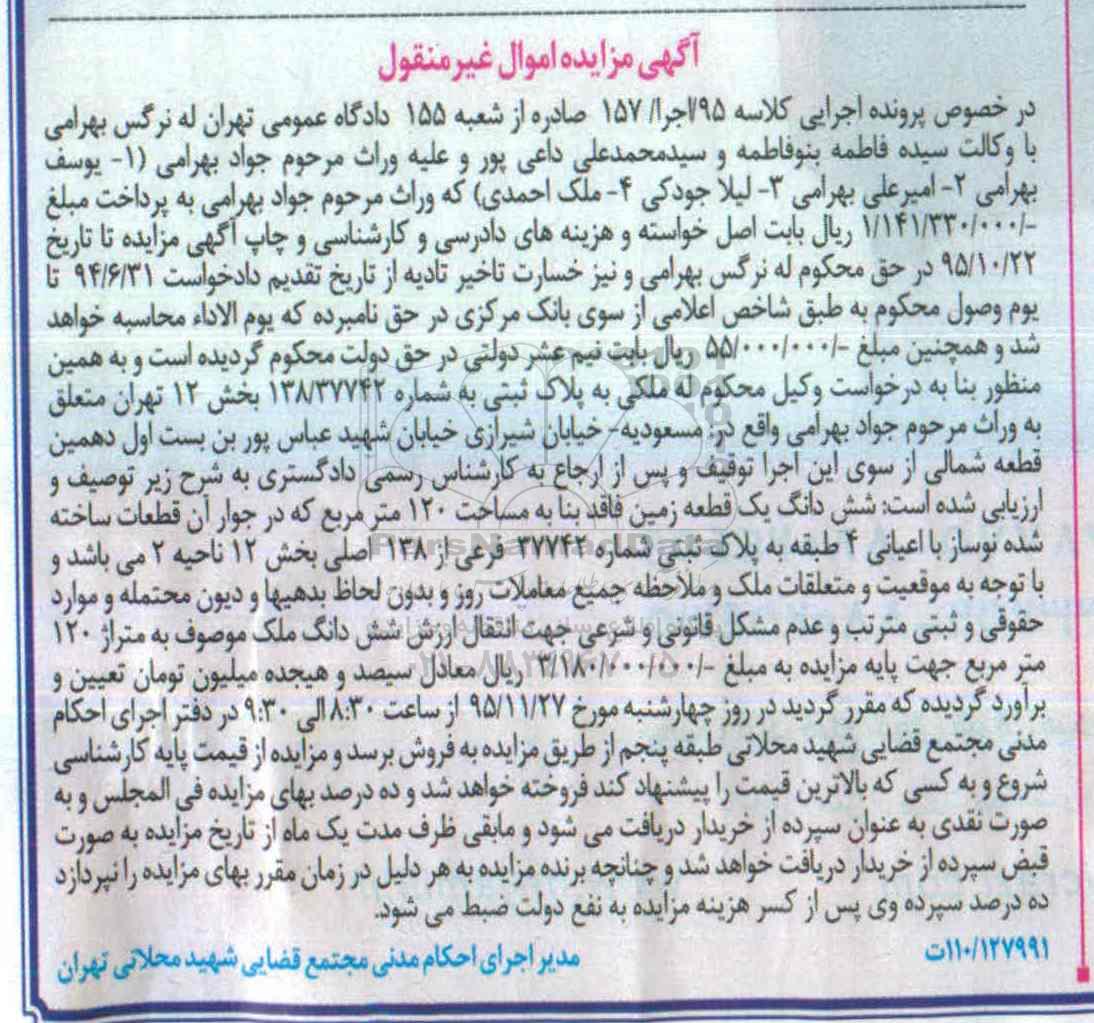 آگهی مزایده اموال غیرمنقول
در خصوص پرونده اجرایی کلاسه ۹۵/اجرا/ ۱۵۷ صادره از شعبه ۱۵۵ دادگاه عمومی تهران له نرگس بهرامی
با وکالت سیده فاطمه بنوفاطمه و سیدمحمدعلی داعی پور و علیه وراث مرحوم جواد بهرامی (۱- یوسف
بهرامی ۲- امیرعلی بهرامی ۳- لیلا جودکی ۴- ملک احمدی) که وراث مرحوم جواد بهرامی به پرداخت مبلغ
۱/۱۴۱/۳۳۰/۰۰۰/- ریال بابت اصل خواسته و هزینه های دادرسی و کارشناسی و چاپ آگهی مزایده تا تاریخ
۹۵/۱۰/۲۲ در حق محکوم له نرگس بهرامی و نیز خسارت تاخیر تادیه از تاریخ تقدیم دادخواست ۹۴/۶/۳۱ تا
یوم وصول محکوم به طبق شاخص اعلامی از سوی بانک مرکزی در حق نامبرده که یوم الاداء محاسبه خواهد
شد و همچنین مبلغ ۵۵/۰۰۰/۰۰۰/- ریال بابت نیم عشر دولتی در حق دولت محکوم گردیده است و به همین
منظور بنا به درخواست وکیل محکوم له ملکی به پلاک ثبتی به شماره ۱۳۸/۳۷۷۴۲ بخش ۱۲ تهران متعلق
به وراث مرحوم جواد بهرامی واقع در: مسعودیه- خیابان شیرازی خیابان شهید عباس پور بن بست اول دهمین
قطعه شمالی از سوی این اجرا توقیف و پس از ارجاع به کارشناس رسمی دادگستری به شرح زیر توصیف و
ارزیابی شده است: شش دانگ یک قطعه زمین فاقد بنا به مساحت ۱۲۰ متر مربع که در جوار آن قطعات ساخته
شده نوساز با اعیانی ۴ طبقه به پلاک ثبتی شماره ۳۷۷۴۲ فرعی از ۱۳۸ اصلی بخش ۱۲ ناحیه ۲ می باشد و
با توجه به موقعیت و متعلقات ملک و ملاحظه جمیع معاملات روز و بدون لحاظ بدهیها و دیون محتمله و موارد
حقوقی و ثبتی مترتب و عدم مشکل قانونی و شرعی جهت انتقال ارزش شش دانگ ملک موصوف به متراژ ۱۲۰
متر مربع جهت پایه مزایده به مبلغ ۳/۱۸۰/۰۰۰/۰۰۰/- ریال معادل سیصد و هیجده میلیون تومان تعیین و
برآورد گردیده که مقرر گردید در روز چهارشنبه مورخ ۹۵/۱۱/۲۷ از ساعت ۸:۳۰ الی ۹:۳۰ در دفتر اجرای احکام
مدنی مجتمع قضایی شهید محلاتی طبقه پنجم از طریق مزایده به فروش برسد و مزایده از قیمت پایه کارشناسی
شروع و به کسی که بالاترین قیمت را پیشنهاد کند فروخته خواهد شد و ده درصد بهای مزایده فی المجلس و به
صورت نقدی به عنوان سپرده از خریدار دریافت می شود و مابقی ظرف مدت یک ماه از تاریخ مزایده به صورت
قبض سپرده از خریدار دریافت خواهد شد و چنانچه برنده مزایده به هر دلیل در زمان مقرر بهای مزایده را نپردازد
ده درصد سپرده وی پس از کسر هزینه مزایده به نفع دولت ضبط می شود.
۱۱۰/۱۲۷۹۹۱ت
مدیر اجرای احکام مدنی مجتمع قضایی شهید محلاتی تهران
ParsNamadData